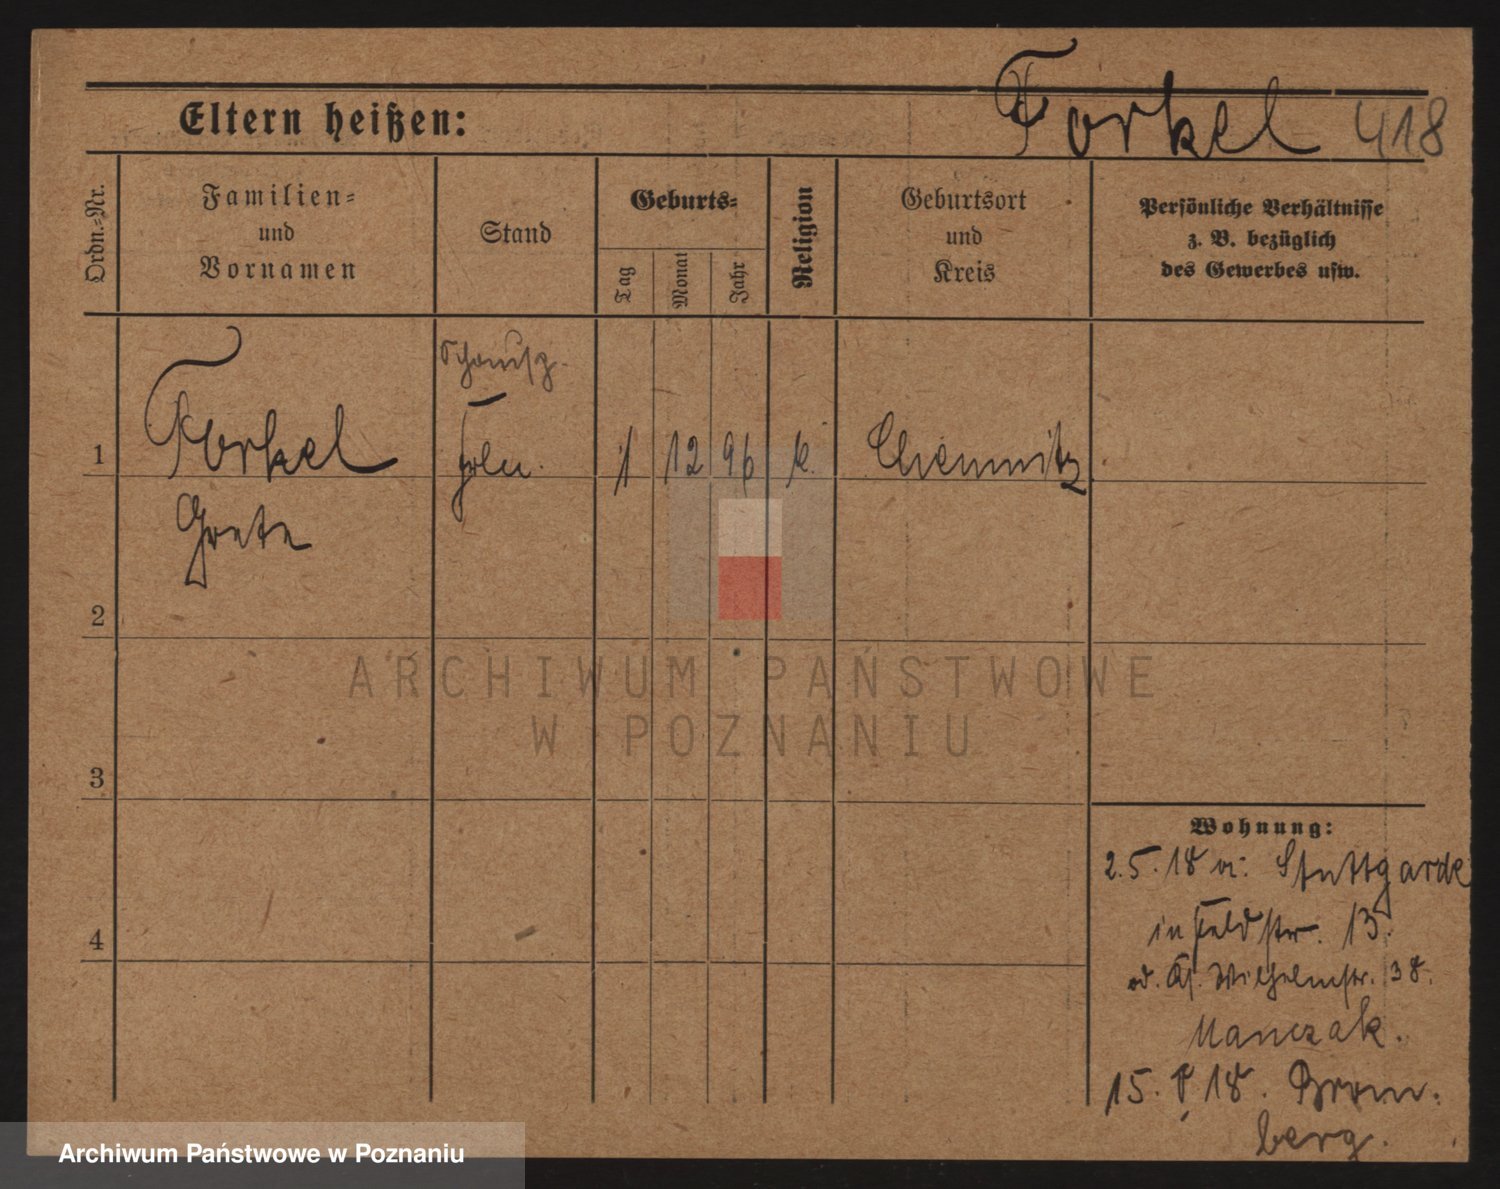 Forkel 418
Eltern heißen:
Ordn.=Nr.
Familien=
und
Vornamen
Stand
Geburts=
Tag
Monat
Jahr
Religion
Geburtsort
und
Kreis
Persönliche Verhältnisse
z. B. bezüglich
des Gewerbes usw.
1
Forkel
Grete
1 12 96 k. Chemnitz
2
3
4
Wohnung:
2.5.18 v: Stuttgard
in Feldstr. 13.
Wilhelmstr. 38.
Manczak.
15. 18. Brom-
berg.
ARCHIWUM PAŃSTWOWE
W POZNANIU
Archiwum Państwowe w Poznaniu